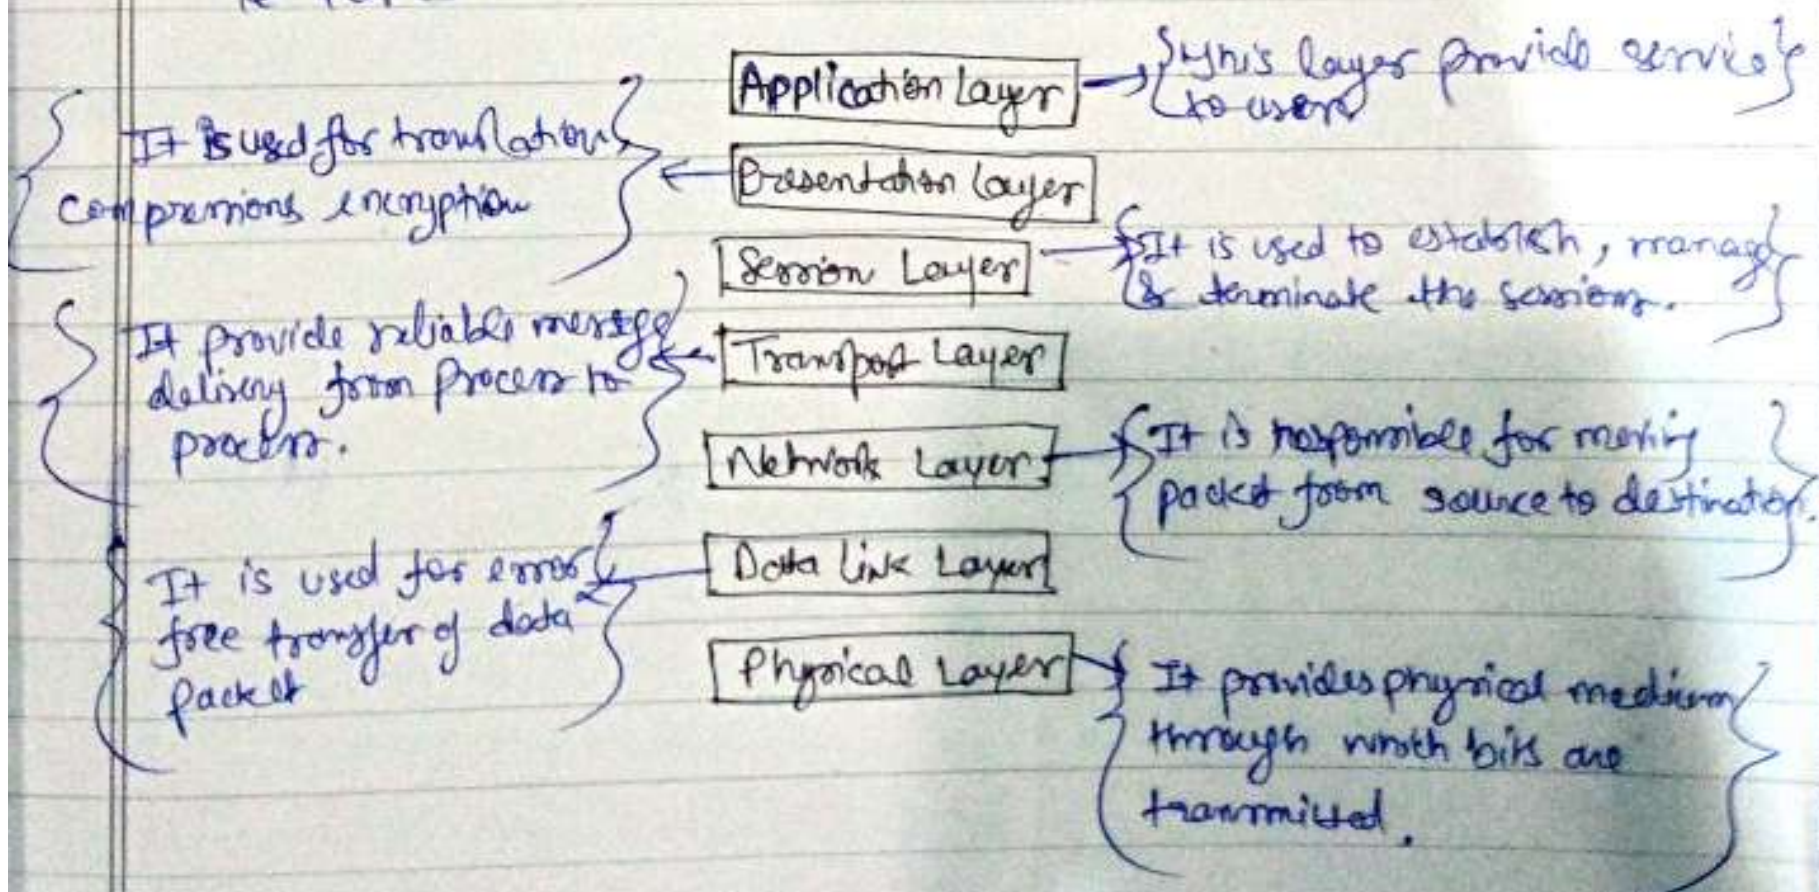 Application Layer
This layer provide service
to users
It is used for translation
compressions encryption
Presentation Layer
Session Layer
It is used to establish, manage
& terminate the sessions.
It provide reliable message
delivery from process to
process.
Transport Layer
Network Layer
It is responsible for moving
packet from source to destination.
It is used for error
free transfer of data
packet
Data Link Layer
Physical Layer
It provides physical medium
through which bits are
transmitted.